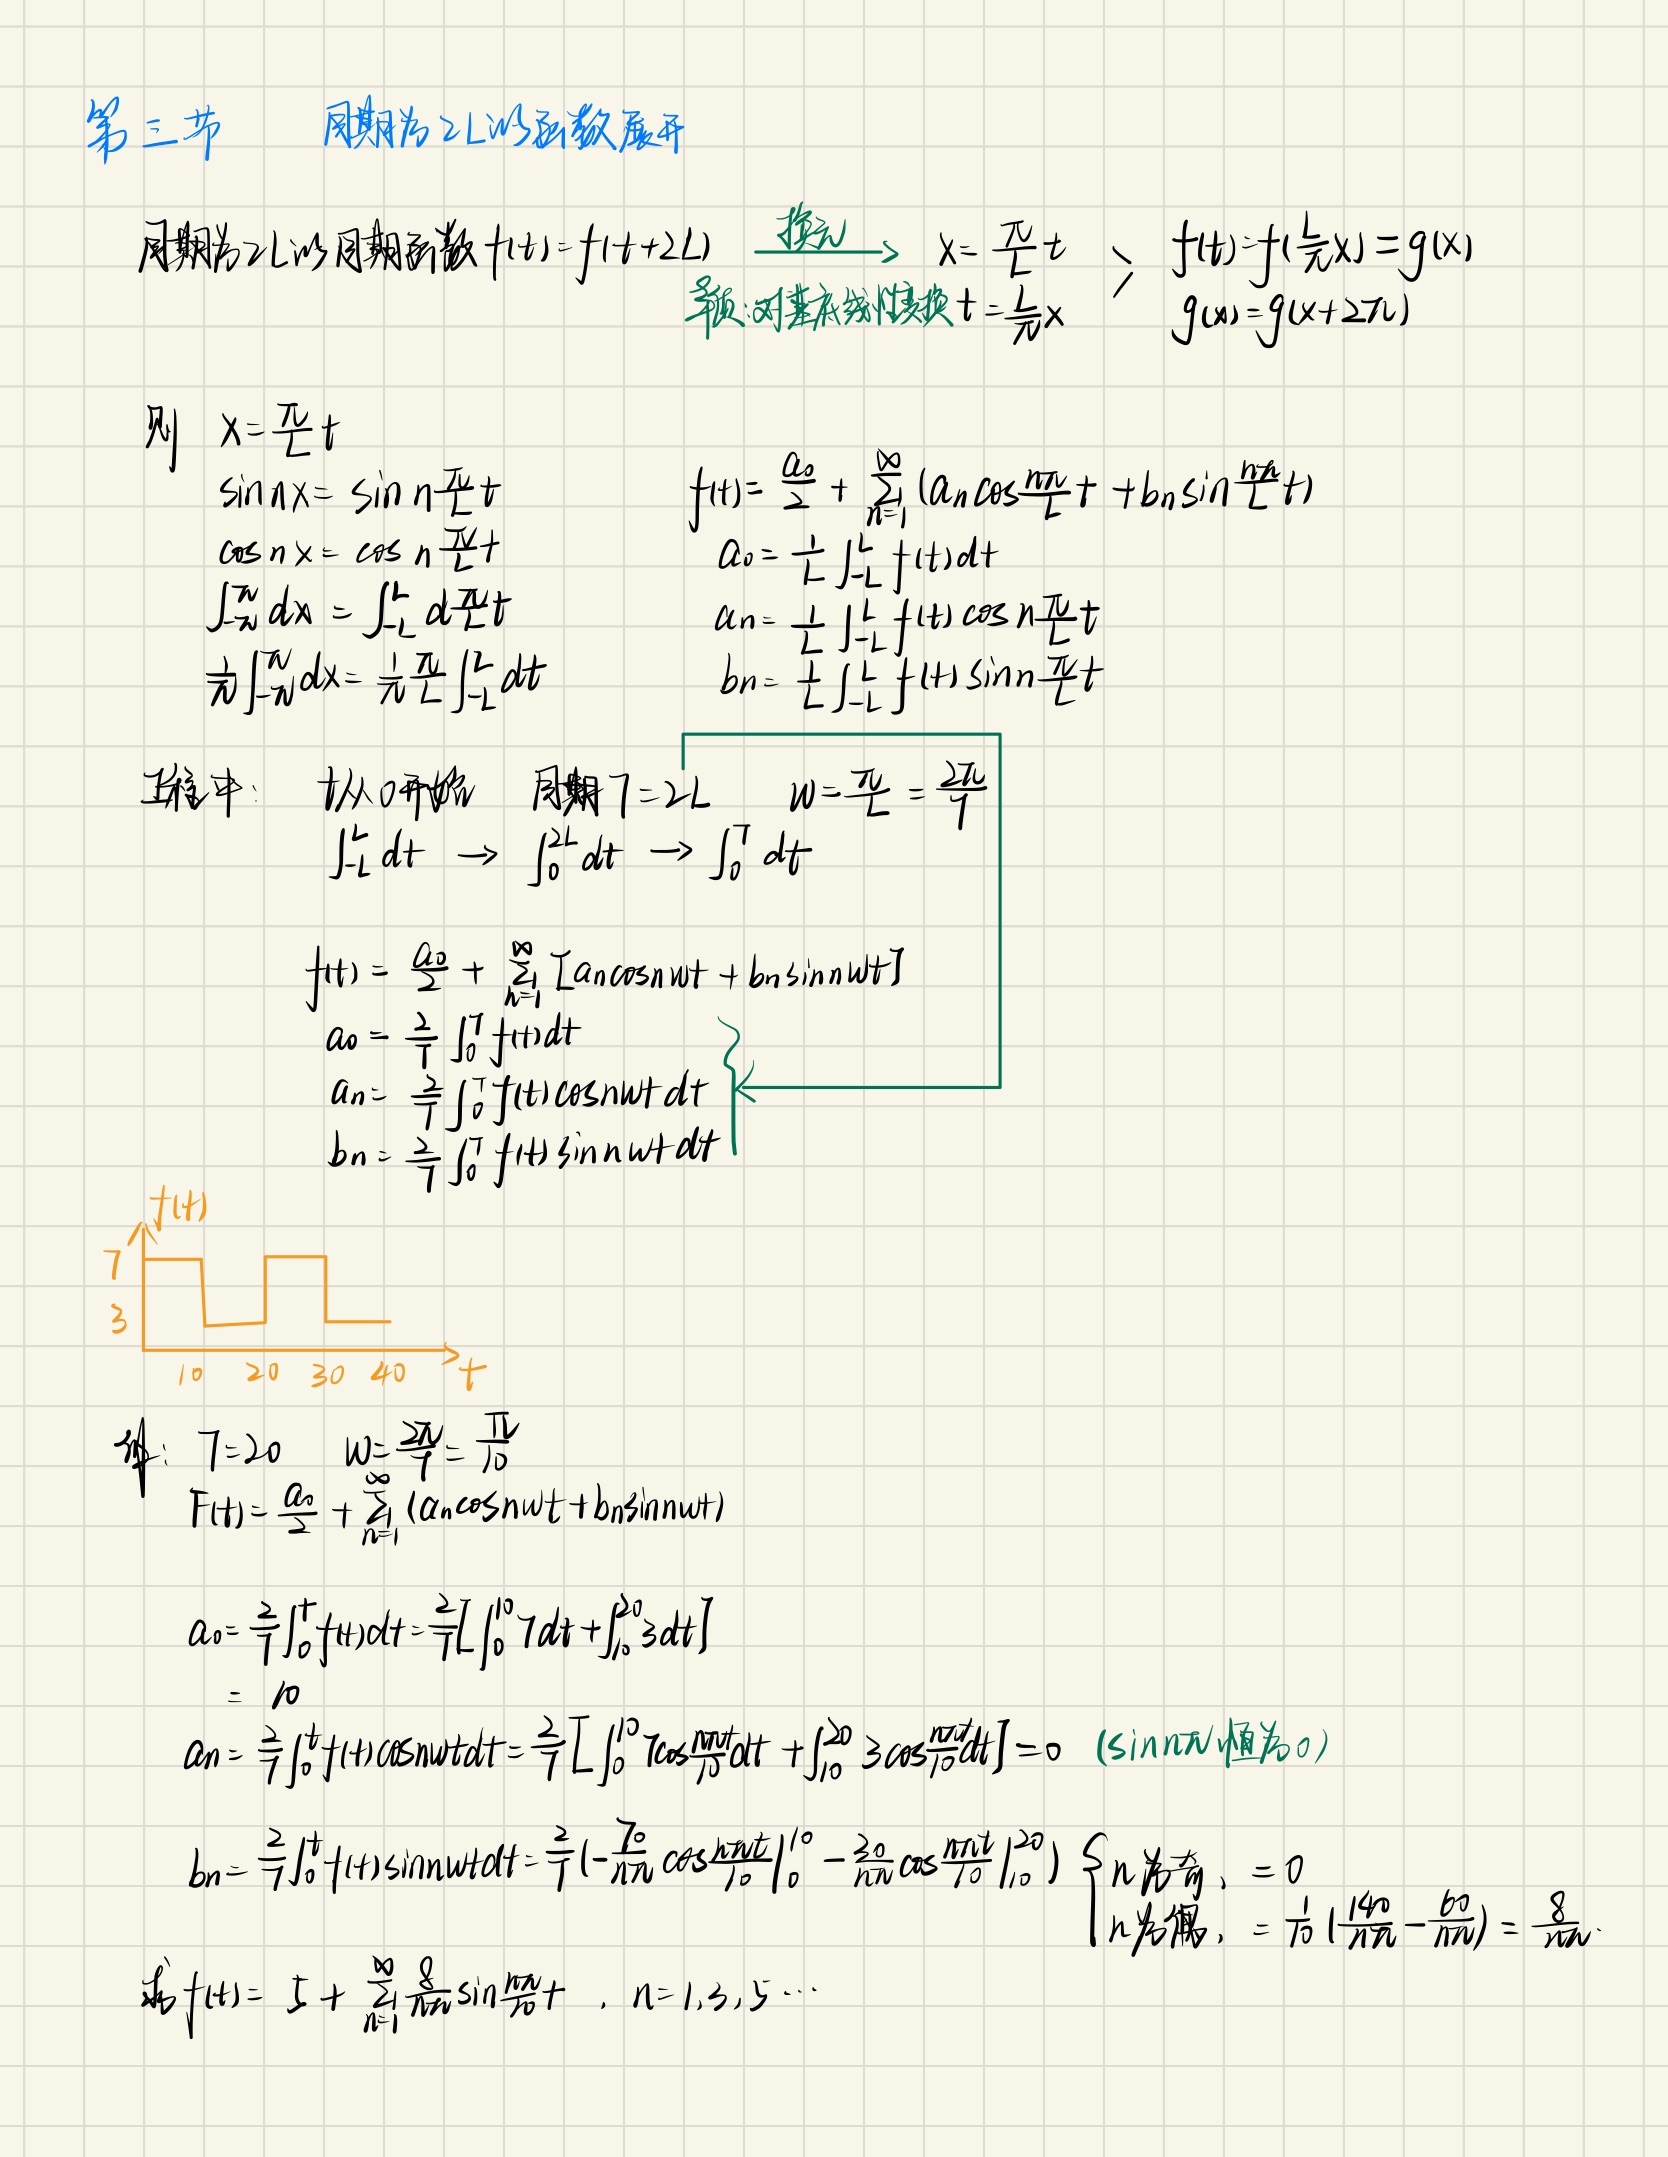 第三节 周期为2L的函数展开
周期为2L的周期函数 f(t)=f(t+2L) 换元 x=π/L t , f(t)=f(L/π x)=g(x)
:对基底线性变换 t=L/π x g(x)=g(x+2π)
则 x=π/L t
sin nx = sin n π/L t f(t)= a₀/2 + ∑_{n=1}^{∞} (aₙ cos nπ/L t + bₙ sin nπ/L t)
cos nx = cos n π/L t a₀ = 1/L ∫_{-L}^{L} f(t)dt
∫_{-π}^{π} dx = ∫_{-L}^{L} d π/L t aₙ = 1/L ∫_{-L}^{L} f(t) cos n π/L t
1/π ∫_{-π}^{π} dx = 1/π π/L ∫_{-L}^{L} dt bₙ = 1/L ∫_{-L}^{L} f(t) sin n π/L t
工程中: t从0开始 周期T=2L w=π/L = 2π/T
∫_{-L}^{L} dt → ∫_{0}^{2L} dt → ∫_{0}^{T} dt
f(t) = a₀/2 + ∑_{n=1}^{∞} [aₙ cos nwt + bₙ sin nwt]
a₀ = 2/T ∫_{0}^{T} f(t)dt
aₙ = 2/T ∫_{0}^{T} f(t) cos nwt dt
bₙ = 2/T ∫_{0}^{T} f(t) sin nwt dt
f(t)
7
3
10 20 30 40 t
解: T=20 w=2π/T=π/10
F(t)= a₀/2 + ∑_{n=1}^{∞} (aₙ cos nwt + bₙ sin nwt)
a₀ = 2/T ∫_{0}^{t} f(t)dt = 2/T [∫_{0}^{10} 7dt + ∫_{10}^{20} 3dt]
= 10
aₙ = 2/T ∫_{0}^{t} f(t) cos nwt dt = 2/T [∫_{0}^{10} 7cos nπt/10 dt + ∫_{10}^{20} 3cos nπt/10 dt] = 0 (sin nπ 恒为0)
bₙ = 2/T ∫_{0}^{t} f(t) sin nwt dt = 2/T (-70/nπ cos nπt/10 |_{0}^{10} - 30/nπ cos nπt/10 |_{10}^{20}) { n为奇, = 0
n为偶, = 1/10 (140/nπ - 60/nπ) = 8/nπ.
故 f(t) = 5 + ∑_{n=1}^{∞} 8/nπ sin nπ/10 t , n=1,3,5…